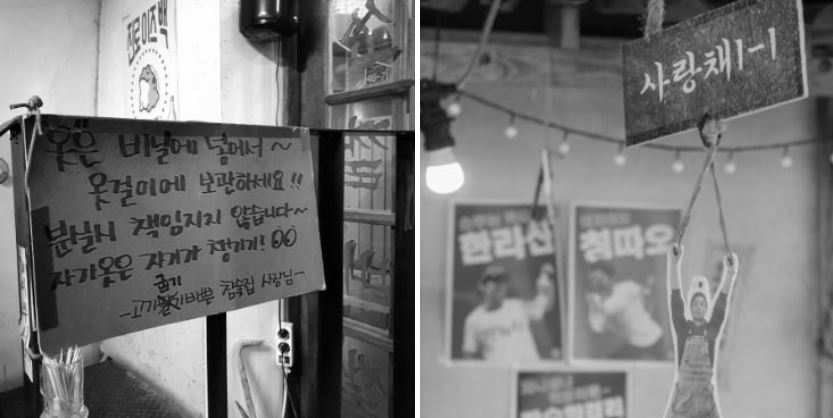 진로이즈백
옷은 비닐에 넣어서~
옷걸이에 보관하세요!!
분실시 책임지지 않습니다~
자기옷은 자기가 챙기기!
굽기
-고기 바쁜 참숯집 사장님-
46-7
사랑채1-1
한라산
청따오